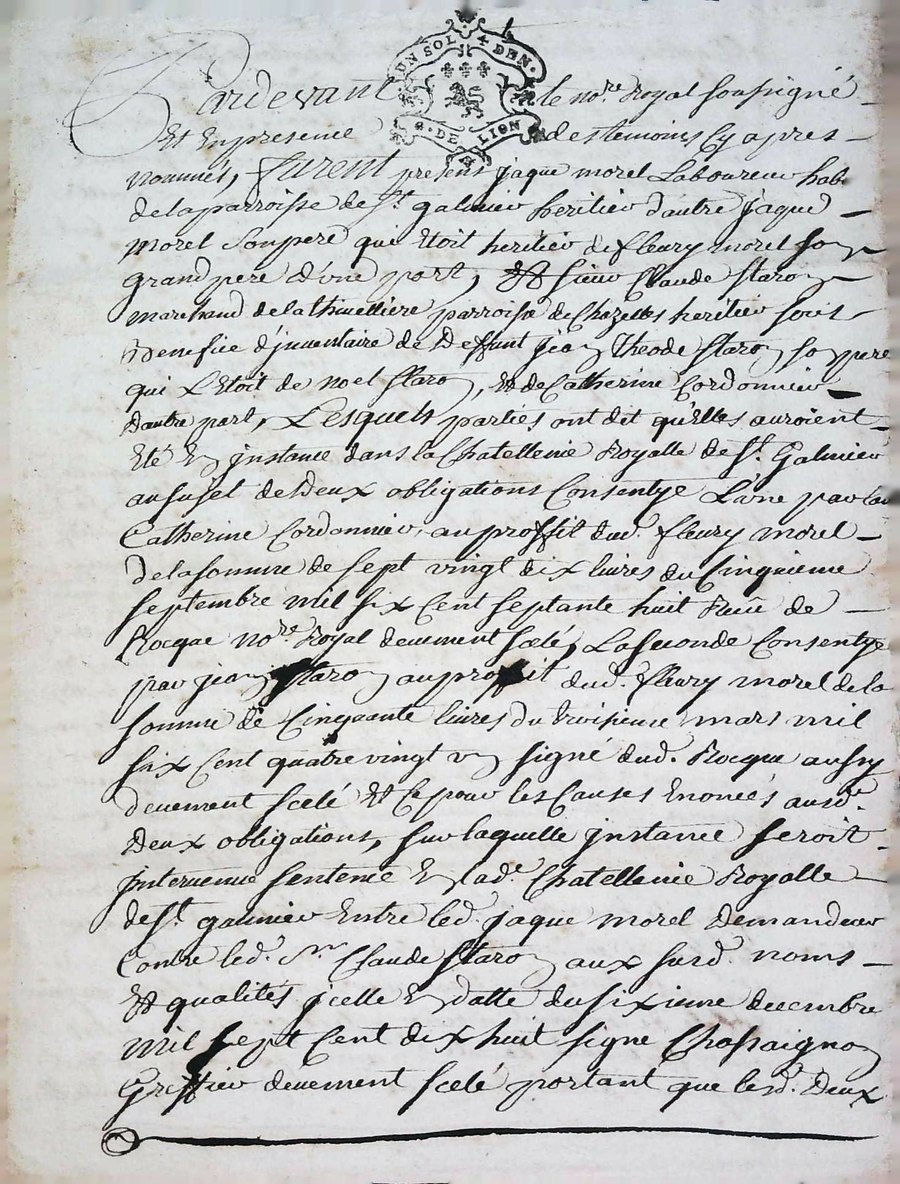 UN SOL 4 DEN.
G. DE LION
Pardevant le no.re Royal soussigné
Et En presence des temoins Cy apres
nommés, furent presens jaque morel Laboureur hab.
de la parroisse de St. galmier heritier d'autre jaque
morel Son pere qui Etoit heritier de fleury morel son
grand pere d'une part, Et sieur Claude Staron
marchand de la thivelliere parroisse de Chazelles heritier sous
Benefice d'jnventaire de Deffunt jean Theode Staron son pere
qui L'Etoit de noel Staron, Et de Catherine Cordonnier
d'autre part, Lesquels parties ont dit qu'elles auroient
Eté En jnstance dans la Chatellenie Royalle de St. Galmier
au sujet de Deux obligations Consentye L'une par la
Catherine Cordonnier, au proffit dud. fleury morel
de la somme de sept vingt dix livres du Cinquieme
septembre mil six Cent septante huit Reüe de
Rocque no.re Royal deuement scelé, La seconde Consentye
par jean Staron au proffit dud. fleury morel de la
somme de Cinquante livres du troisieme mars mil
six Cent quatre vingt un signé dud. Rocque aussy
deuement scelé Et Ce pour les Causes Enoncés ausd.
Deux obligations, sur laquelle jnstance seroit
jntervenue sentence En lad.e Chatellenie Royalle
de St. galmier Entre led. jaque morel Demandeur
Contre led. Sr. Claude Staron aux susd. noms
Et qualités jcelle En datte du sixieme decembre
mil sept Cent dix huit signe Chassaignon
Greffier deuement scelé portant que lesd. Deux